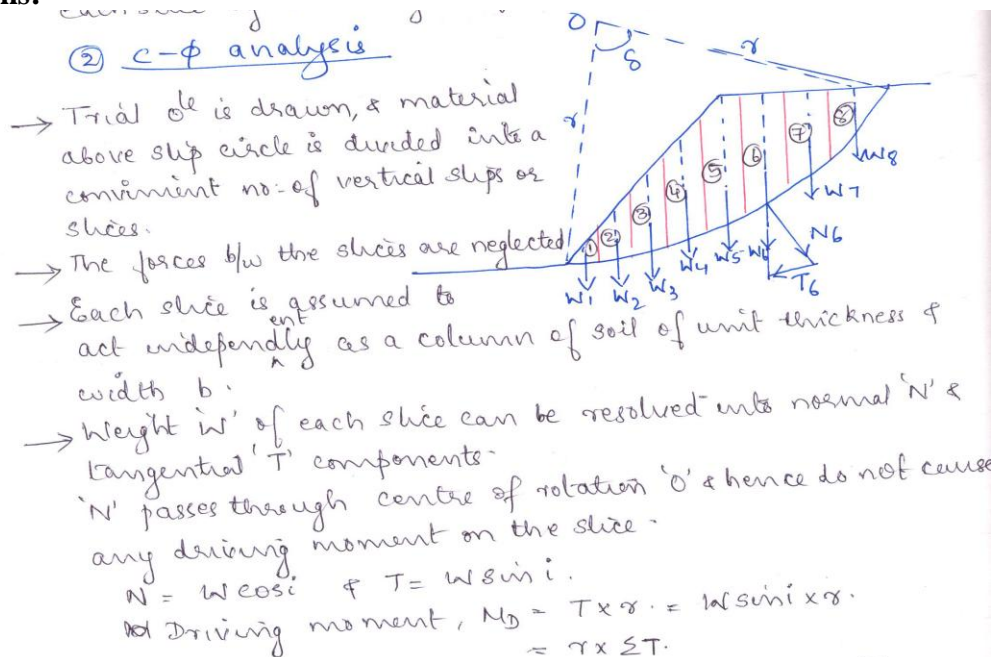 ns:
each slice
② c-ϕ analysis
→ Trial ole is drawn, & material
above slip circle is divided into a
convinient no: of vertical slips or
slices.
→ The forces b/w the slices are neglected
→ Each slice is assumed to
act independently as a column of soil of unit thickness &
width b.
→ Weight 'W' of each slice can be resolved into normal 'N' &
tangential 'T' components.
'N' passes through centre of rotation 'O' & hence do not cause
any driving moment on the slice.
N = W cos i & T = W sin i.
Driving moment, M_D = T x r. = W sin i x r.
= r x ΣT.
O
δ
r
r
① ② ③ ④ ⑤ ⑥ ⑦ ⑧
W1 W2 W3 W4 W5 W6 W7 W8
N6
T6